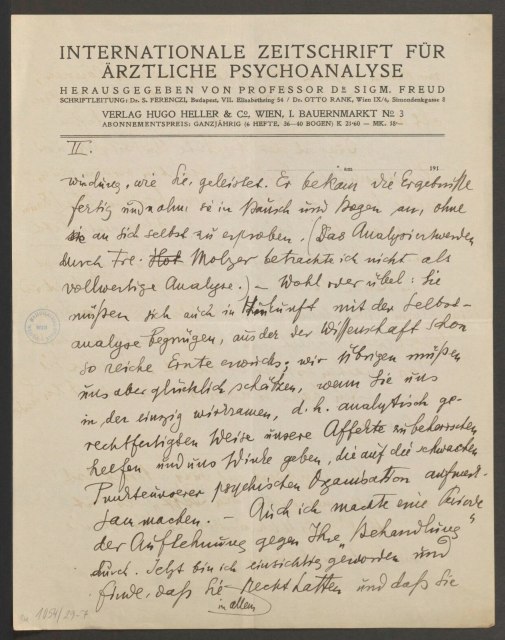 INTERNATIONALE ZEITSCHRIFT FÜR
ÄRZTLICHE PSYCHOANALYSE
HERAUSGEGEBEN VON PROFESSOR DR SIGM. FREUD
SCHRIFTLEITUNG: Dr. S. FERENCZI, Budapest, VII. Elisabethring 54 / Dr. OTTO RANK, Wien IX/4, Simondenkgasse 8
VERLAG HUGO HELLER & Co, WIEN, I. BAUERNMARKT No 3
ABONNEMENTSPREIS: GANZJÄHRIG (6 HEFTE, 36—40 BOGEN) K 21·60 — MK. 18·—
II.
am 191
windung, wie Sie, geleistet. Er bekam die Ergebnisse
fertig und nahm sie in Bausch und Bogen an, ohne
sie an sich selbst zu erproben. (Das Analysiertwerden
durch Frl. Molzer betrachte ich nicht als
vollwertige Analyse.) – Wohl oder übel: Sie
müssen sich auch in Zukunft mit der Selbst-
analyse begnügen, aus der der Wissenschaft schon
so reiche Ernte erwuchs; wir Übrigen müssen
uns aber glücklich schätzen, wenn Sie uns
in der einzig wirksamen, d. h. analytisch ge-
rechtfertigten Weise unsere Affekte zu beherrschen
helfen und uns Winke geben, die auf die schwachen
Punkte unserer psychischen Organisation aufmerk-
sam machen. – Auch ich machte eine Periode
der Auflehnung gegen Ihre „Behandlung"
durch. Jetzt bin ich einsichtig geworden und
finde, daß Sie in allem Recht hatten und daß Sie